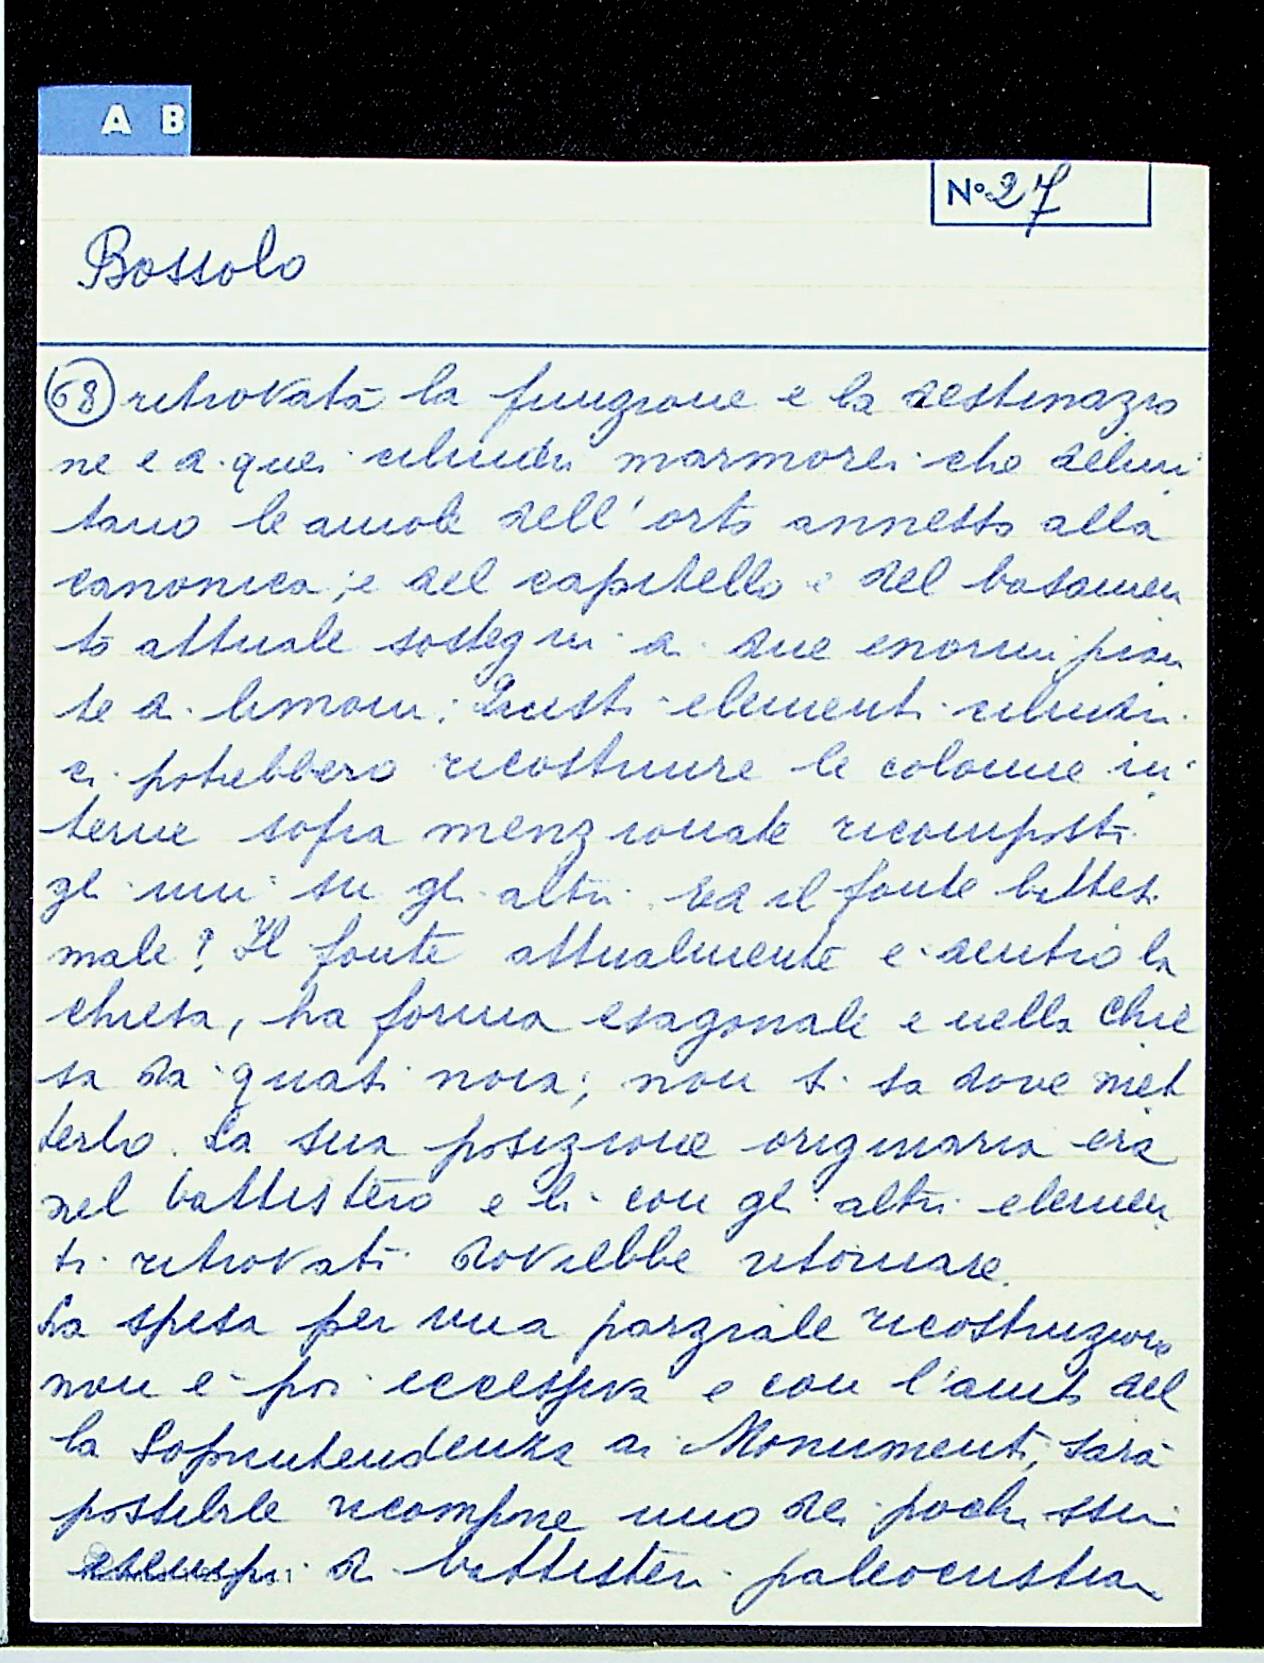 A B
N° 27
Bossolo
68 ritrovata la funzione e la destinazio
ne e di quei cilindri marmorei che delimi
tano le aiuole dell'orto annesso alla
canonica; e del capitello e del basamen
to attuale sostegni di due enormi pian
te di limoni. Questi elementi cilindri
ci potrebbero ricostruire le colonne in
terne sopra menzionate ricomposti
gli uni su gli altri. Ed il fonte battesi
male? Il fonte attualmente è dentro la
chiesa, ha forma esagonale e nella chie
sa dà quasi noia; non si sa dove met
terlo. La sua posizione originaria era
nel battistero e lì con gli altri elemen
ti ritrovati dovrebbe ritornare.
La spesa per una parziale ricostruzione
non è poi eccessiva e con l'aiuto del
la Soprintendenza ai Monumenti, sarà
possibile ricomporre uno dei pochissimi
esempi di battisteri paleocristian